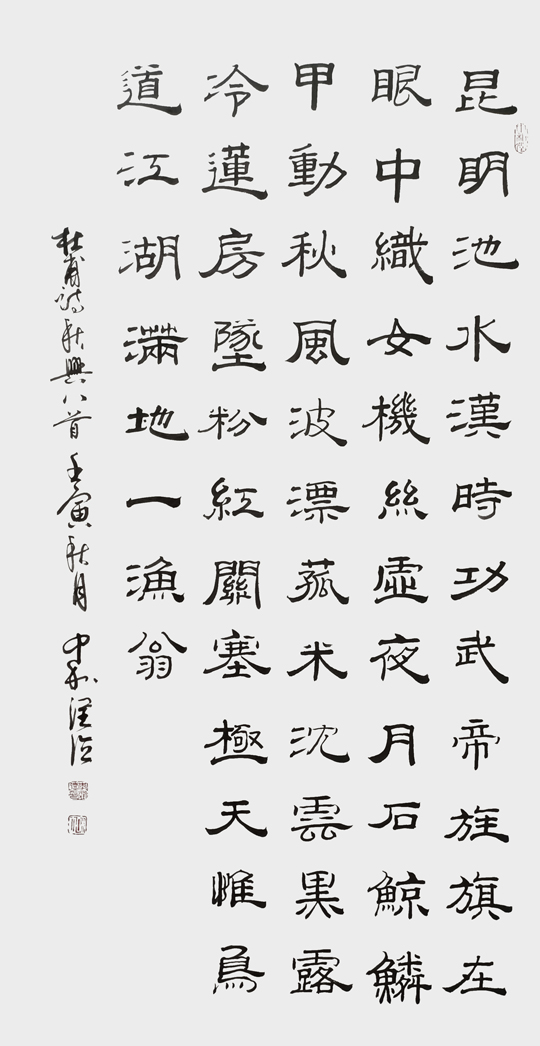 昆明池水漢時功武帝旌旗在
眼中織女機絲虛夜月石鯨鱗
甲動秋風波漂菰米沈雲黑露
冷蓮房墜粉紅關塞極天惟鳥
道江湖滿地一漁翁
杜甫詩秋興八首壬寅秋月